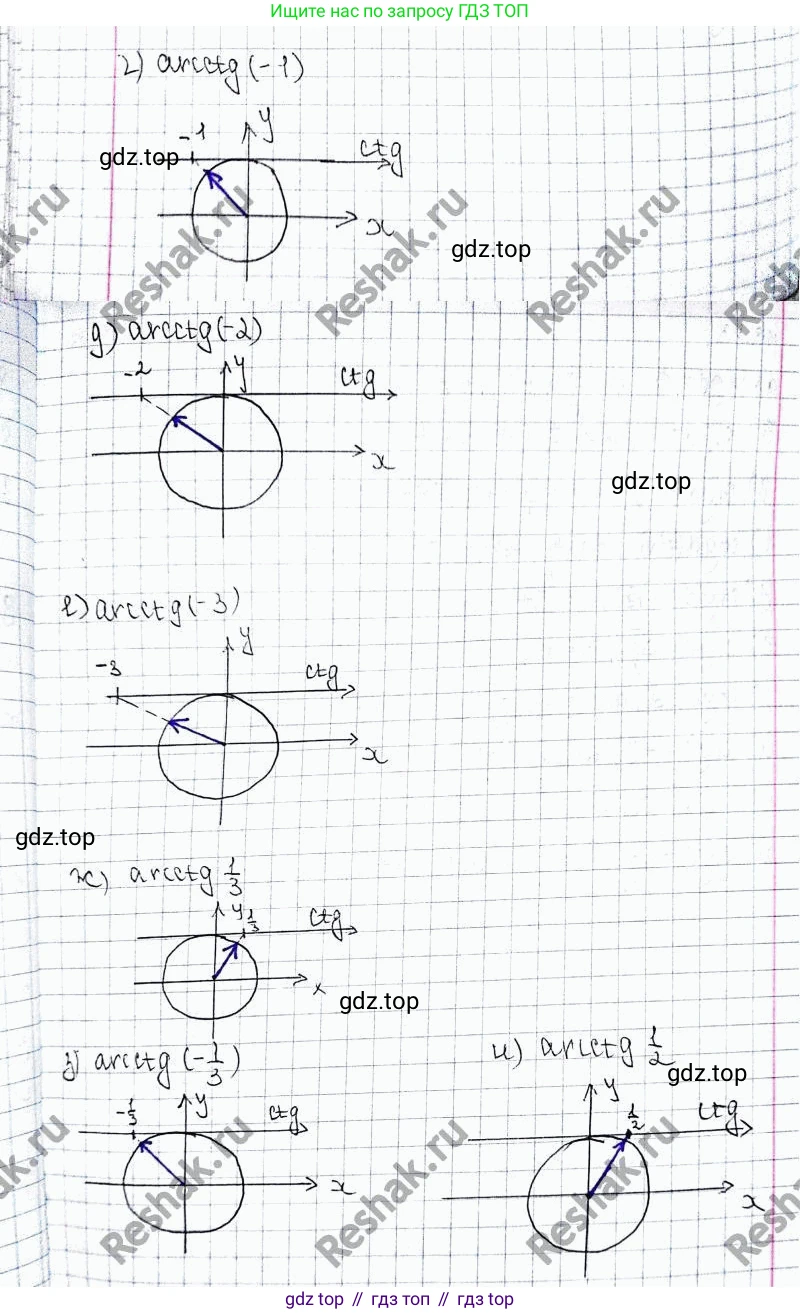 Ищите нас по запросу ГДЗ ТОП
г) arcctg(-1)
y
-1
ctg
gdz.top
x
gdz.top
Reshak.ru
Reshak.ru
Reshak.ru
д) arcctg(-2)
-2
y
ctg
x
gdz.top
е) arcctg(-3)
y
-3
ctg
x
gdz.top
ж) arcctg 1/3
y 1/3
ctg
x
gdz.top
з) arcctg (-1/3)
и) arcctg 1/2
gdz.top
-1/3
y
ctg
y
1/2
ctg
x
x
Reshak.ru
Reshak.ru
Reshak.ru
gdz.top // гдз топ // гдз top